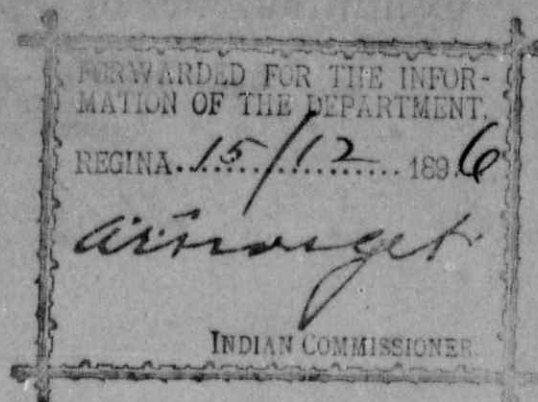 FORWARDED FOR THE INFOR-
MATION OF THE DEPARTMENT.
REGINA. 15/12 1896
AEForget
INDIAN COMMISSIONER.